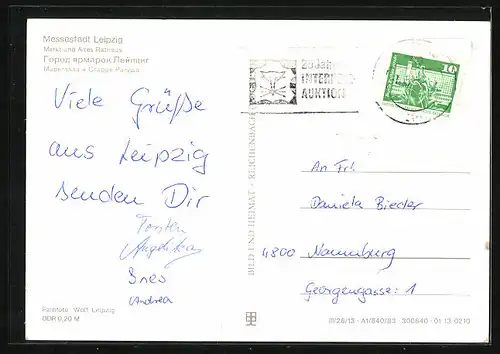 Messestadt Leipzig
Markt und Altes Rathaus
Город ярмарок Лейпциг
Маркплац и Старая Ратуша
Viele Grüße
aus Leipzig
senden Dir
Torsten
Ines
Andrea
Farbfoto: Wolf, Leipzig
DDR 0,20 M
BILD UND HEIMAT · REICHENBACH
INTERPELZ-
AUKTION
10
An Frl.
Daniela Bieder
4800 Naumburg
Georgengasse 1
III/26/13 · A1/840/83 · 300640 · 01 13 0210